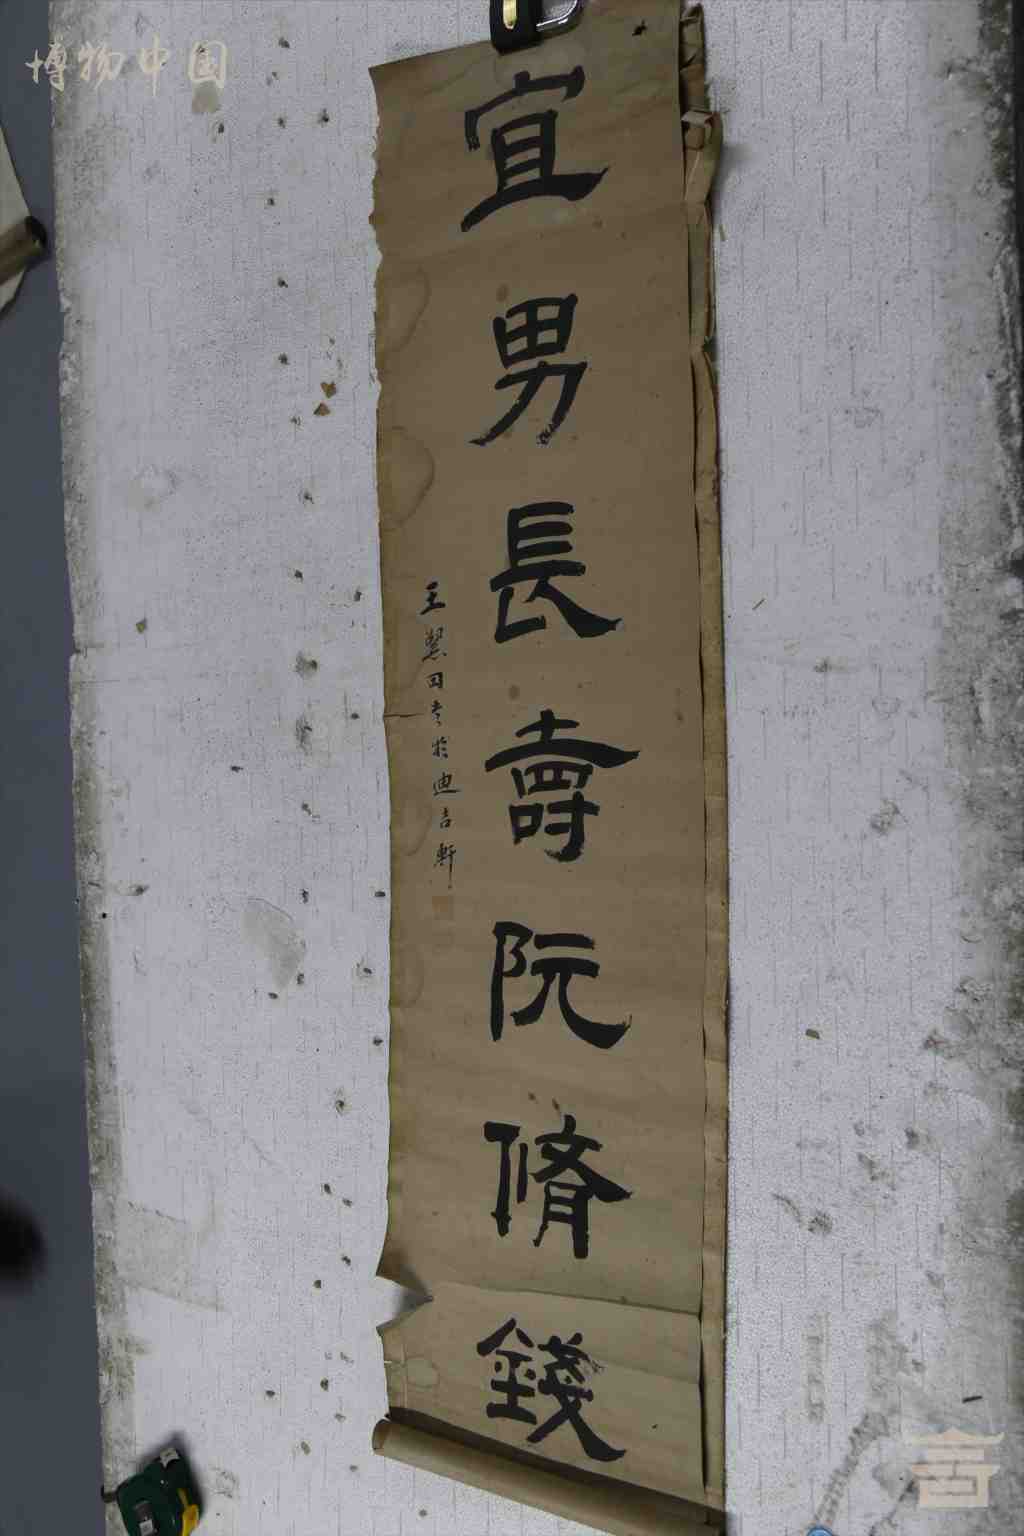 博物中国
宜男長壽阮脩錢
王慧田書於迪吉軒